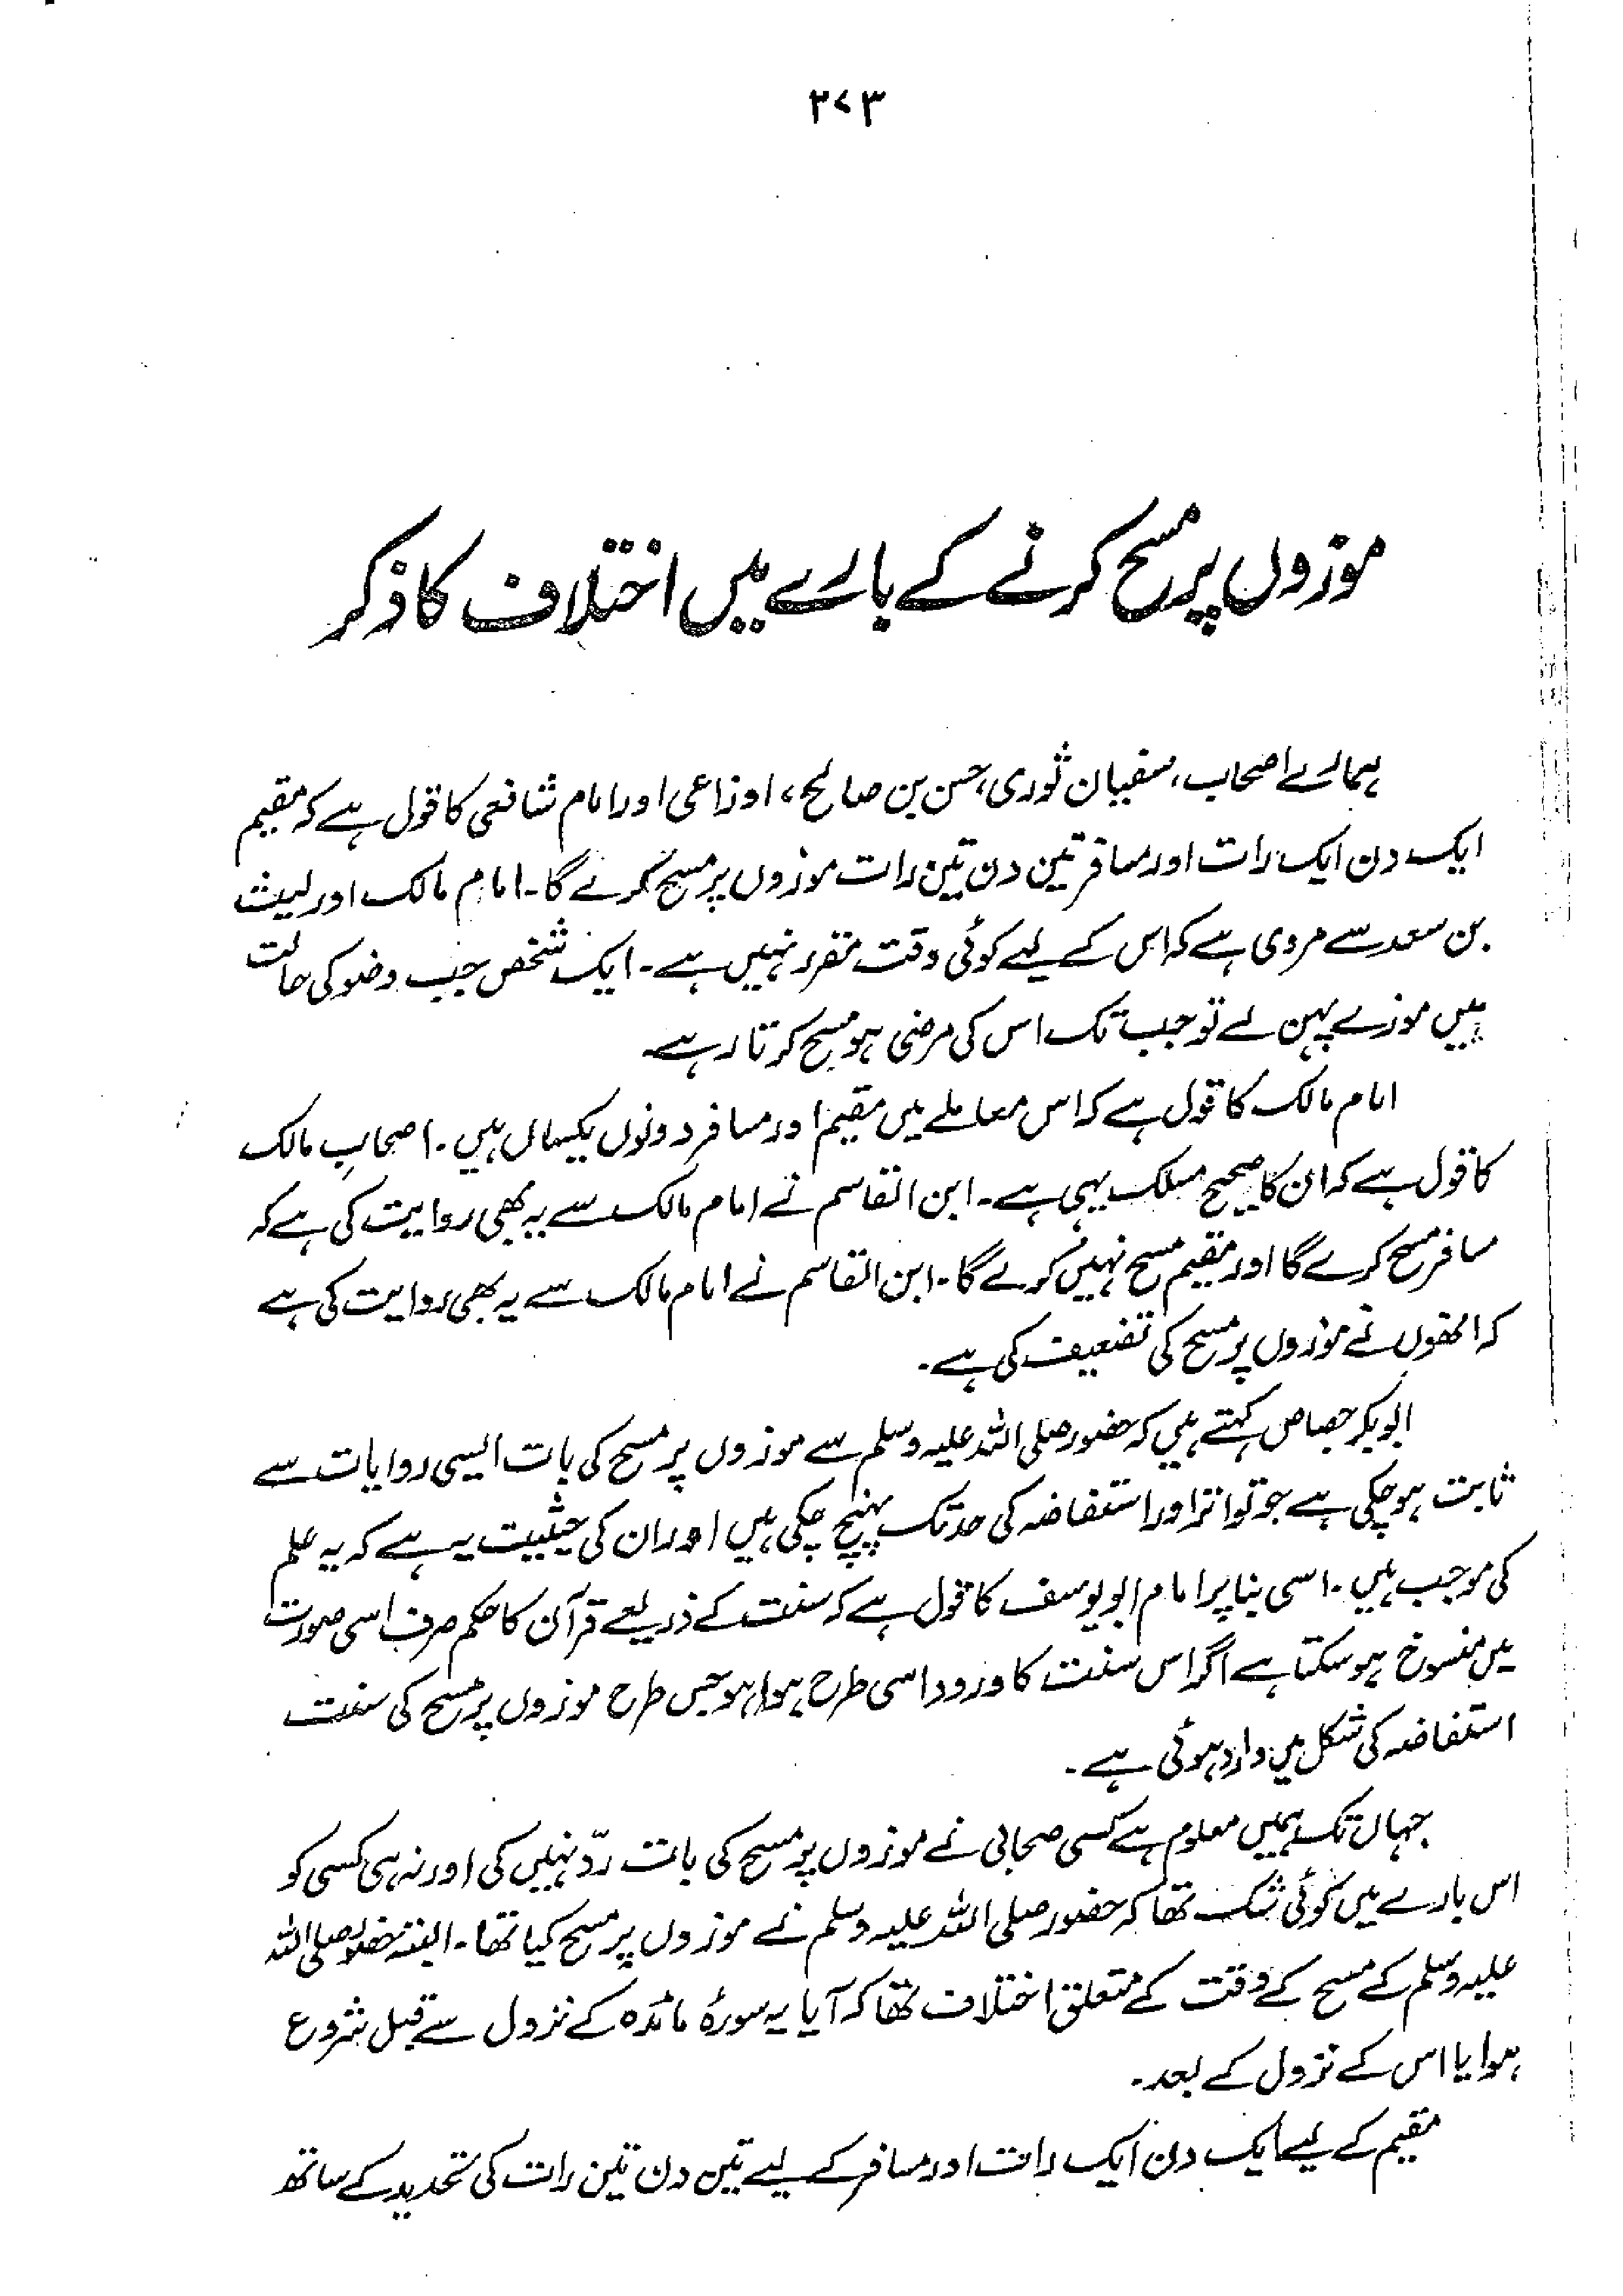 ۳۷۳
موزوں پر مسح کرنے کے بارے میں اختلاف کا ذکر
ہمارے اصحاب، سفیان ثوری، حسن بن صالح، اوزاعی اور امام شافعی کا قول ہے کہ مقیم
ایک دن ایک رات اور مسافر تین دن تین رات موزوں پر مسح کرے گا۔ امام مالک اور لیث
بن سعد سے مروی ہے کہ اس کے لیے کوئی وقت مقرر نہیں ہے۔ ایک شخص جب وضو کی حالت
میں موزے پہن لے تو جب تک اس کی مرضی ہو مسح کرتا رہے۔
امام مالک کا قول ہے کہ اس معاملے میں مقیم اور مسافر دونوں یکساں ہیں۔ اصحابِ مالک
کا قول ہے کہ ان کا صحیح مسلک یہی ہے۔ ابن القاسم نے امام مالک سے یہ بھی روایت کی ہے کہ
مسافر مسح کرے گا اور مقیم مسح نہیں کرے گا۔ ابن القاسم نے امام مالک سے یہ بھی روایت کی ہے
کہ انھوں نے موزوں پر مسح کی تضعیف کی ہے۔
ابوبکر جصاص کہتے ہیں کہ حضور صلی اللہ علیہ وسلم سے موزوں پر مسح کی بات ایسی روایات سے
ثابت ہو چکی ہے جو تواتر اور استفاضہ کی حد تک پہنچ چکی ہیں اور ان کی حیثیت یہ ہے کہ یہ علم
کی موجب ہیں۔ اسی بنا پر امام ابو یوسف کا قول ہے کہ سنت کے ذریعے قرآن کا حکم صرف اسی صورت
میں منسوخ ہو سکتا ہے اگر اس سنت کا ورود اسی طرح ہوا ہو جس طرح موزوں پر مسح کی سنت
استفاضہ کی شکل میں وارد ہوئی ہے۔
جہاں تک ہمیں معلوم ہے کسی صحابی نے موزوں پر مسح کی بات ردّ نہیں کی اور نہ ہی کسی کو
اس بارے میں کوئی شک تھا کہ حضور صلی اللہ علیہ وسلم نے موزوں پر مسح کیا تھا۔ البتہ حضور صلی اللہ
علیہ وسلم کے مسح کے وقت کے متعلق اختلاف تھا کہ آیا یہ سورۂ مائدہ کے نزول سے قبل شروع
ہوا یا اس کے نزول کے بعد۔
مقیم کے لیے ایک دن ایک رات اور مسافر کے لیے تین دن تین رات کی تحدید کے ساتھ